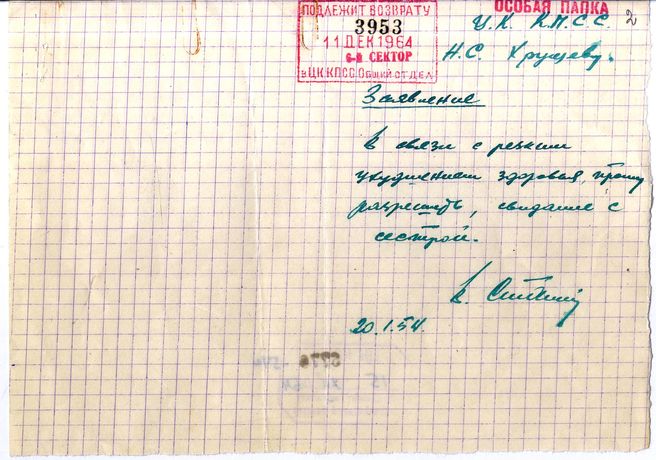 ПОДЛЕЖИТ ВОЗВРАТУ
3953
11 ДЕК 1964
6-й СЕКТОР
в ЦК КПСС Общий отдел
ОСОБАЯ ПАПКА
2
Ц.К. К.П.С.С.
Н.С. Хрущеву.
Заявление
В связи с резким
ухудшением здоровья, прошу
разрешить, свидание с
сестрой.
В.
20.1.54.